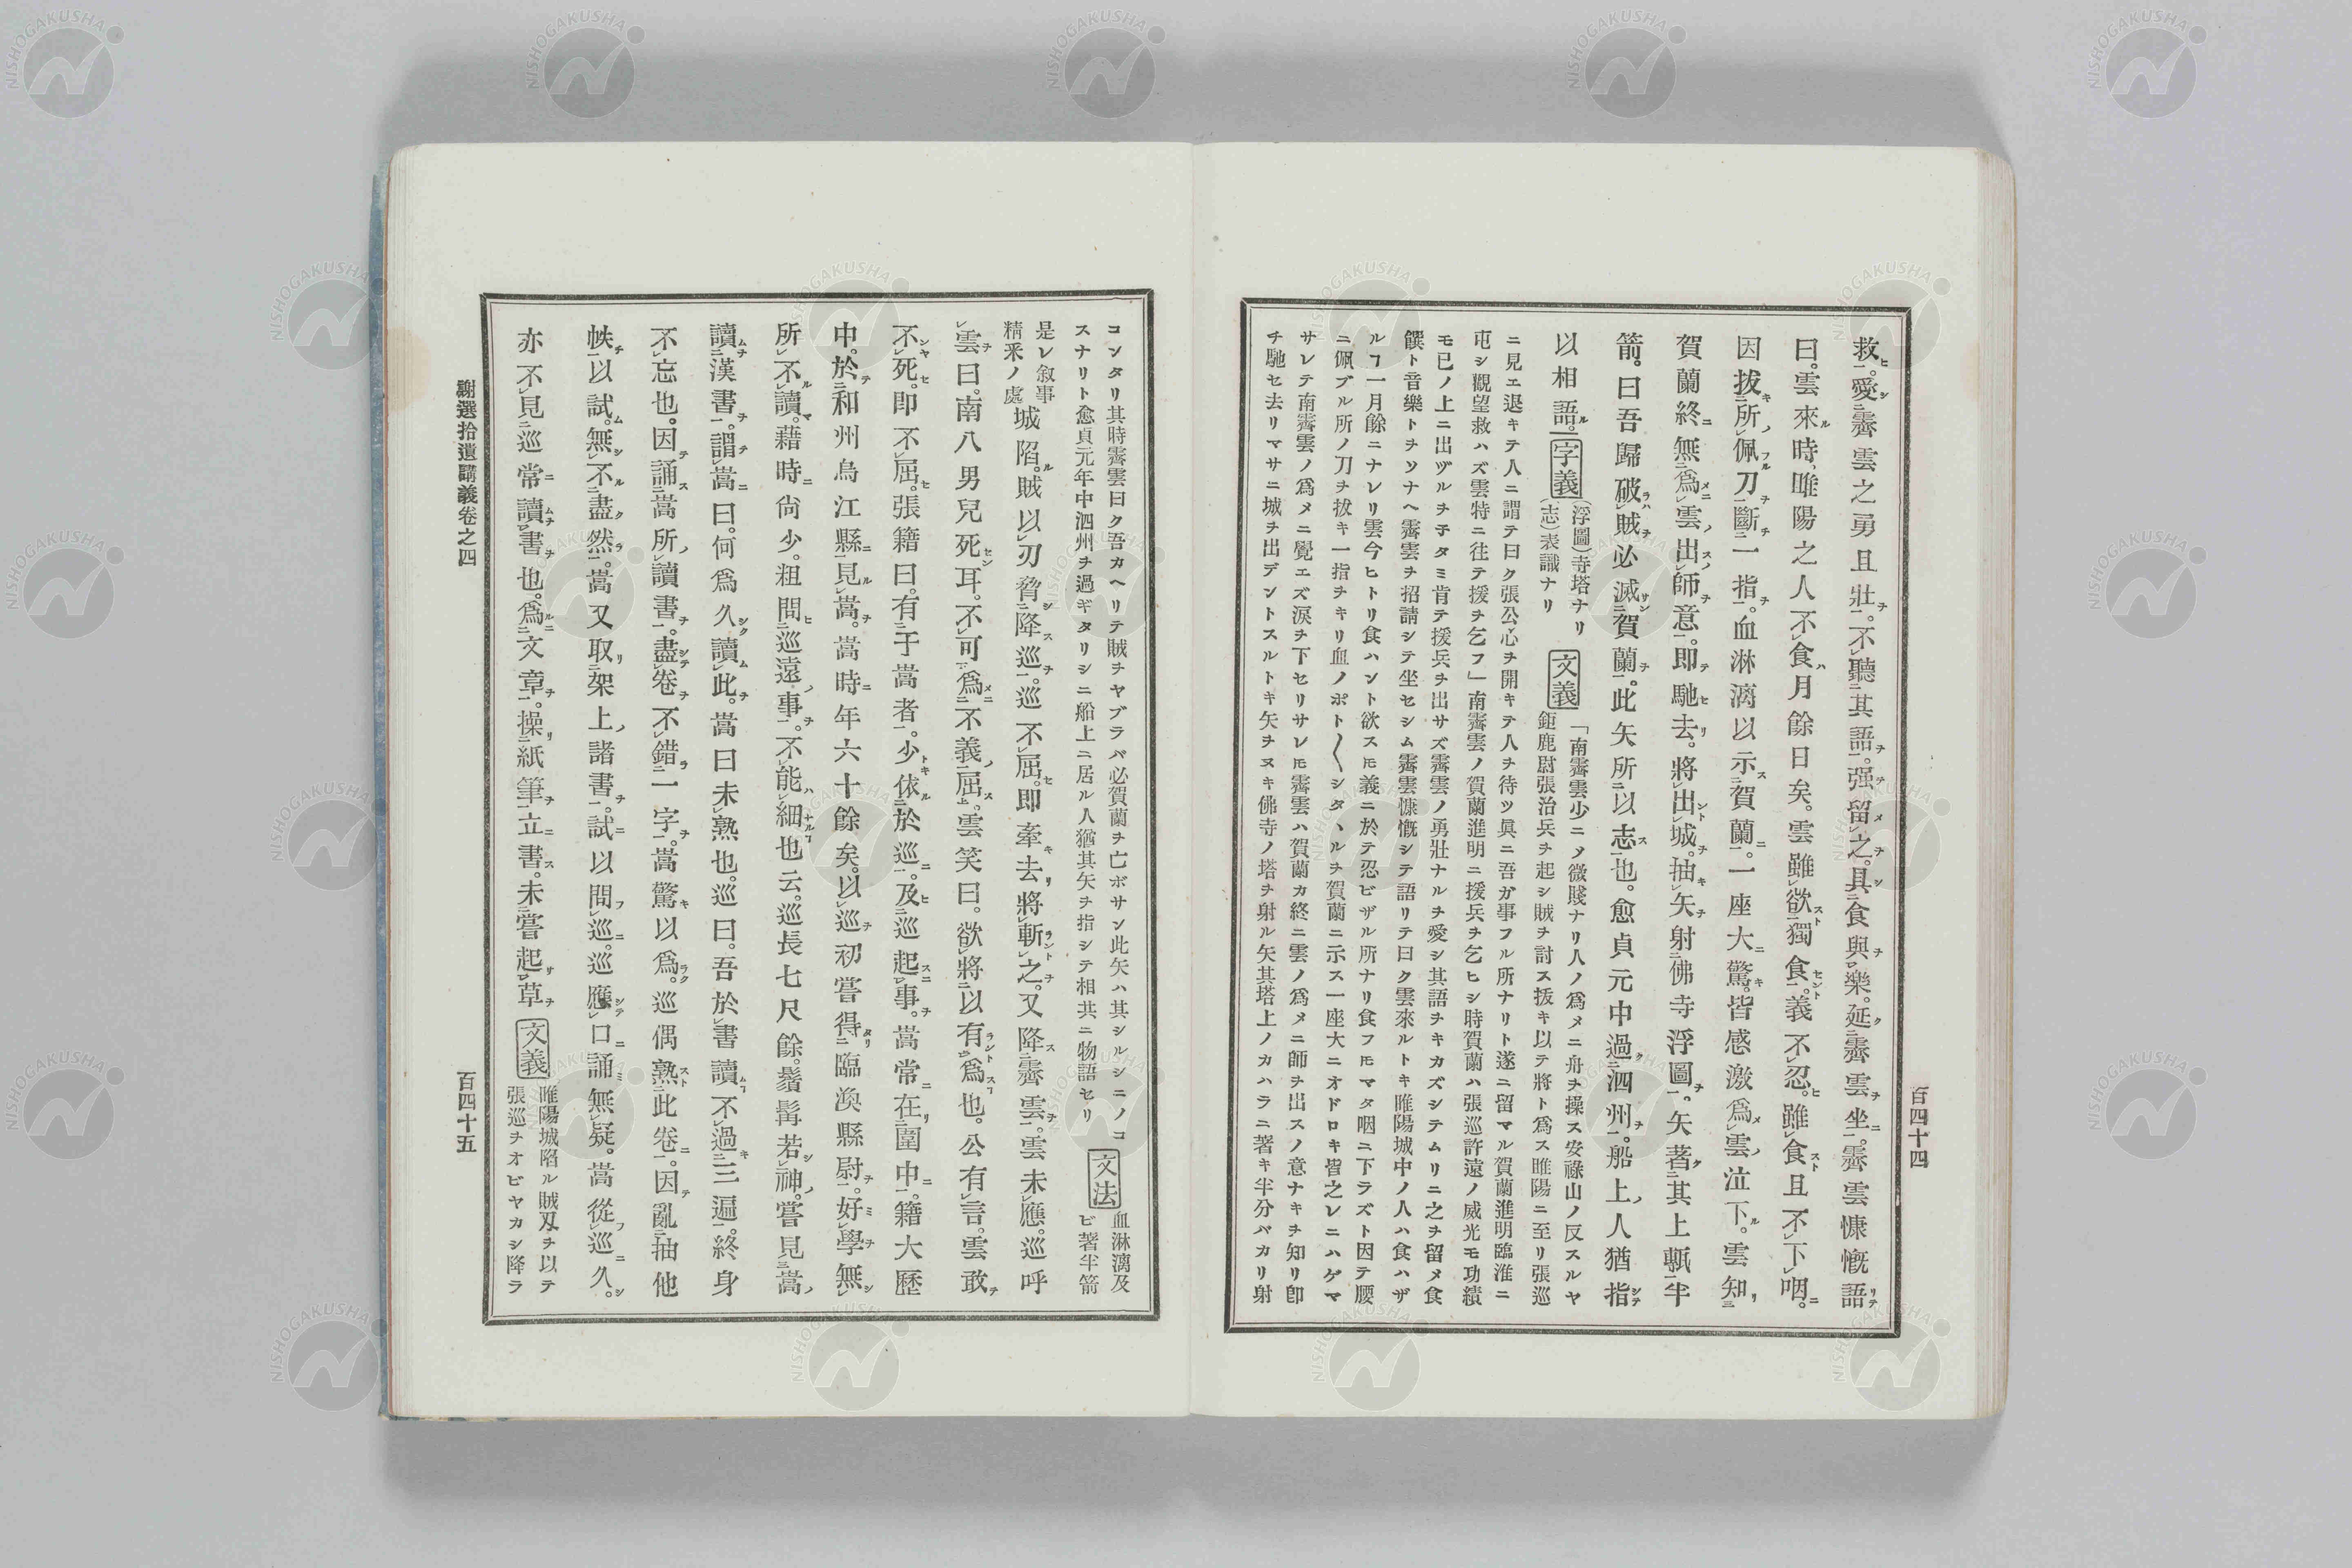 救。愛霽雲之勇且壯。不聽其語。强留之。具食與樂。延霽雲坐。霽雲慷慨語
曰。雲來時、睢陽之人不食月餘日矣。雲雖欲獨食。義不忍。雖食且不下咽。
因拔所佩刀斷一指。血淋漓以示賀蘭。一座大驚。皆感激爲雲泣下。雲知
賀蘭終無爲雲出師意。即馳去。將出城。抽矢射佛寺浮圖。矢著其上甎半
箭。曰吾歸破賊必滅賀蘭。此矢所以志也。愈貞元中過泗州。船上人猶指
以相語。字義(浮圖)寺塔ナリ(志)表識ナリ 文義「南霽雲少ニメ微賤ナリ人ノ爲メニ舟ヲ操ス安祿山ノ反スルヤ
鉅鹿尉張治兵ヲ起シ賊ヲ討ス拔キ以テ將ト爲ス睢陽ニ至リ張巡
ニ見エ退キテ人ニ謂テ曰ク張公心ヲ開キテ人ヲ待ツ眞ニ吾ガ事フル所ナリト遂ニ留マル賀蘭進明臨淮ニ
屯シ觀望救ハズ雲特ニ往テ援ヲ乞フ」南霽雲ノ賀蘭進明ニ援兵ヲ乞ヒシ時賀蘭ハ張巡許遠ノ威光モ功績
モ已ノ上ニ出ヅルヲ子タミ肯テ援兵ヲ出サズ霽雲ノ勇壯ナルヲ愛シ其語ヲキカズシテムリニ之ヲ留メ食
饌ト音樂トヲソナヘ霽雲ヲ招請シテ坐セシム霽雲慷慨シテ語リテ曰ク雲來ルトキ睢陽城中ノ人ハ食ハザ
ルヿ一月餘ニナレリ雲今ヒトリ食ハント欲スモ義ニ於テ忍ビザル所ナリ食フモマタ咽ニ下ラズト因テ腰
ニ佩ブル所ノ刀ヲ拔キ一指ヲキリ血ノポト〱シタヽルヲ賀蘭ニ示ス一座大ニオドロキ皆之レニハゲマ
サレテ南霽雲ノ爲メニ覺エズ涙ヲ下セリサレモ霽雲ハ賀蘭カ終ニ雲ノ爲メニ師ヲ出スノ意ナキヲ知リ卽
チ馳セ去リマサニ城ヲ出デントスルトキ矢ヲヌキ佛寺ノ塔ヲ射ル矢其塔上ノカハラニ著キ半分バカリ射
百四十四
コンタリ其時霽雲曰ク吾カヘリテ賊ヲヤブラバ必賀蘭ヲ亡ボサン此矢ハ其シルシニノコ
スナリト愈貞元年中泗州ヲ過ギタリシニ船上ニ居ル人猶其矢ヲ指シテ相共ニ物語セリ 文法 血淋漓及ビ著半箭
是レ敘事精釆ノ處 城陷。賊以刃脅降巡。巡不屈。即牽去。將斬之。又降霽雲。雲未應。巡呼
雲曰。南八男兒死耳。不可爲不義屈。雲笑曰。欲將以有爲也。公有言。雲敢
不死。即不屈。張籍曰。有于嵩者。少依於巡。及巡起事。嵩常在圍中。籍大歷
中。於和州烏江縣見嵩。嵩時年六十餘矣。以巡初嘗得臨渙縣尉。好學無
所不讀。藉時尙少。粗問巡遠事。不能細也云。巡長七尺餘。鬚髯若神。嘗見嵩
讀漢書。謂嵩曰。何爲久讀此。嵩曰未熟也。巡曰。吾於書讀不過三遍。終身
不忘也。因誦嵩所讀書。盡卷不錯一字。嵩驚以爲。巡偶熟此卷。因亂抽他
帙以試。無不盡然。嵩又取架上諸書。試以問巡。巡應口誦無疑。嵩從巡久。
亦不見巡常讀書也。爲文章。操紙筆立書。未嘗起草 文義 睢陽城陷ル賊刄ヲ以テ
張巡ヲオビヤカシ降ラ
謝選拾遺講義卷之四
百四十五
NISHOGAKUSHA